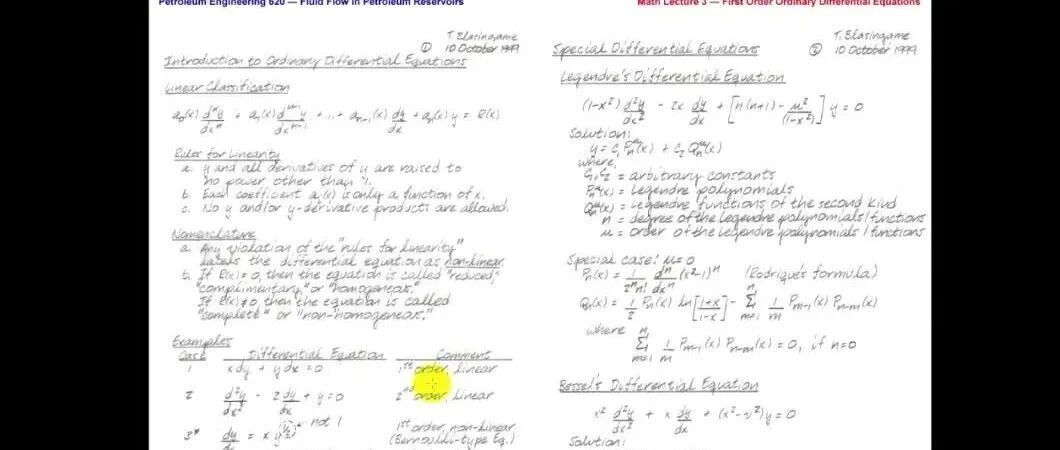 Petroleum Engineering 620 — Fluid Flow in Petroleum Reservoirs
T. Blasingame
① 10 October 1999
Introduction to Ordinary Differential Equations
Linear Classification
a₀(x) dⁿy/dxⁿ + a₁(x) dⁿ⁻¹y/dxⁿ⁻¹ + ... + aₙ₋₁(x) dy/dx + aₙ(x) y = R(x)
Rules for Linearity
a. y and all derivatives of y are raised to
no power other than 1.
b. Each coefficient aᵢ(x) is only a function of x.
c. No y and/or y-derivative products are allowed.
Nomenclature
a. Any violation of the "rules for linearity"
labels the differential equation as non-linear.
b. If R(x)=0, then the equation is called "reduced",
"complimentary," or "homogeneous."
If R(x)≠0, then the equation is called
"complete" or "non-homogeneous."
Examples
Case Differential Equation Comment
1 xdy + ydx = 0 1ST order, linear
2 d²y/dx² - 2 dy/dx + y = 0 2nd order, linear
not 1
3* dy/dx = x y 1ST order, non-linear
(Bernoulli-type Eq.)
Math Lecture 3 — First Order Ordinary Differential Equations
T. Blasingame
Special Differential Equations ② 10 October 1999
Legendre's Differential Equation
(1-x²) d²y/dx² - 2x dy/dx + [n(n+1) - μ²/(1-x²)] y = 0
Solution:
y = c₁ Pₙᵘ(x) + c₂ Qₙᵘ(x)
where,
c₁, c₂ = arbitrary constants
Pₙᵘ(x) = Legendre polynomials
Qₙᵘ(x) = Legendre functions of the second kind
n = degree of the legendre polynomials/functions
μ = order of the legendre polynomials/functions
Special case: μ=0
Pₙ(x) = 1/(2ⁿn!) dⁿ/dxⁿ (x²-1)ⁿ (Rodrigue's formula)
Qₙ(x) = 1/2 Pₙ(x) ln[(1+x)/(1-x)] - Σₘ₌₁ⁿ 1/m Pₘ₋₁(x) Pₙ₋ₘ(x)
where
Σₘ₌₁ⁿ 1/m Pₘ₋₁(x) Pₙ₋ₘ(x) = 0, if n=0
Bessel's Differential Equation
x² d²y/dx² + x dy/dx + (x²-ν²)y = 0
Solution: